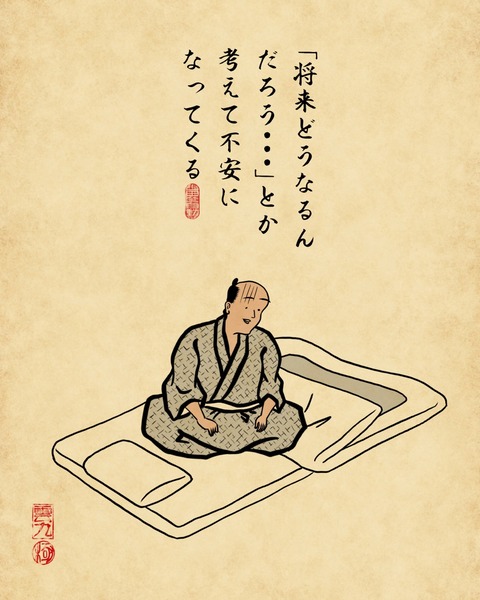 「将来どうなるん
だろう・・・」とか
考えて不安に
なってくる